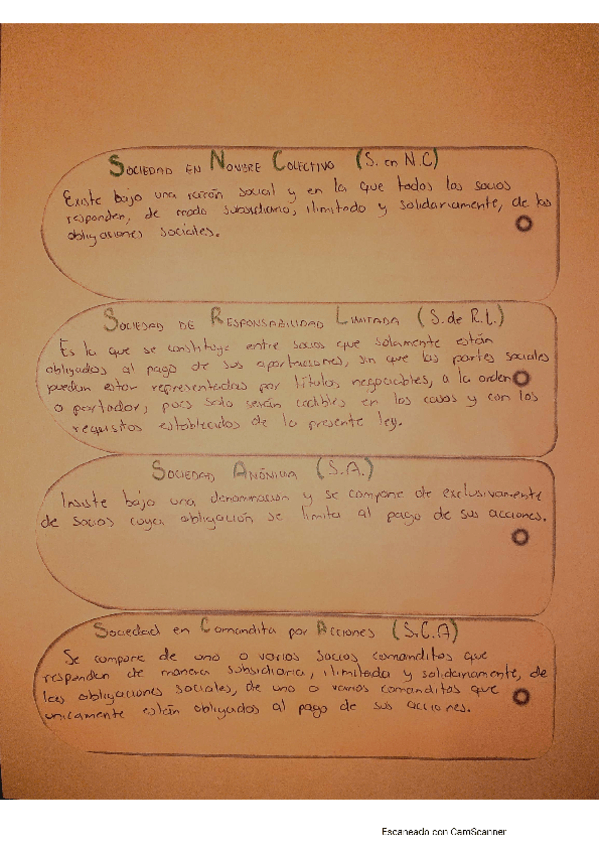 SOCIEDAD EN NOMBRE COLECTIVO (S. en N.C)
Existe bajo una razón social y en la que todos los socios
responden, de modo subsidiario, ilimitado y solidariamente, de las
obligaciones sociales.
SOCIEDAD DE RESPONSABILIDAD LIMITADA (S. de R.L.)
Es la que se constituye entre socios que solamente están
obligados al pago de sus aportaciones, sin que las partes sociales
puedan estar representadas por títulos negociables, a la orden
o portador, pues solo serán cedibles en los casos y con los
requisitos establecidos de la presente ley.
SOCIEDAD ANÓNIMA (S.A.)
Insiste bajo una denominación y se compone de exclusivamente
de socios cuya obligación se limita al pago de sus acciones.
Sociedad en Comandita por Acciones (S.C.A)
Se compone de uno o varios socios comanditos que
responden de manera subsidiaria, ilimitada y solidariamente, de
las obligaciones sociales, de uno o varios comanditos que
unicamente están obligados al pago de sus acciones.
Escaneado con CamScanner